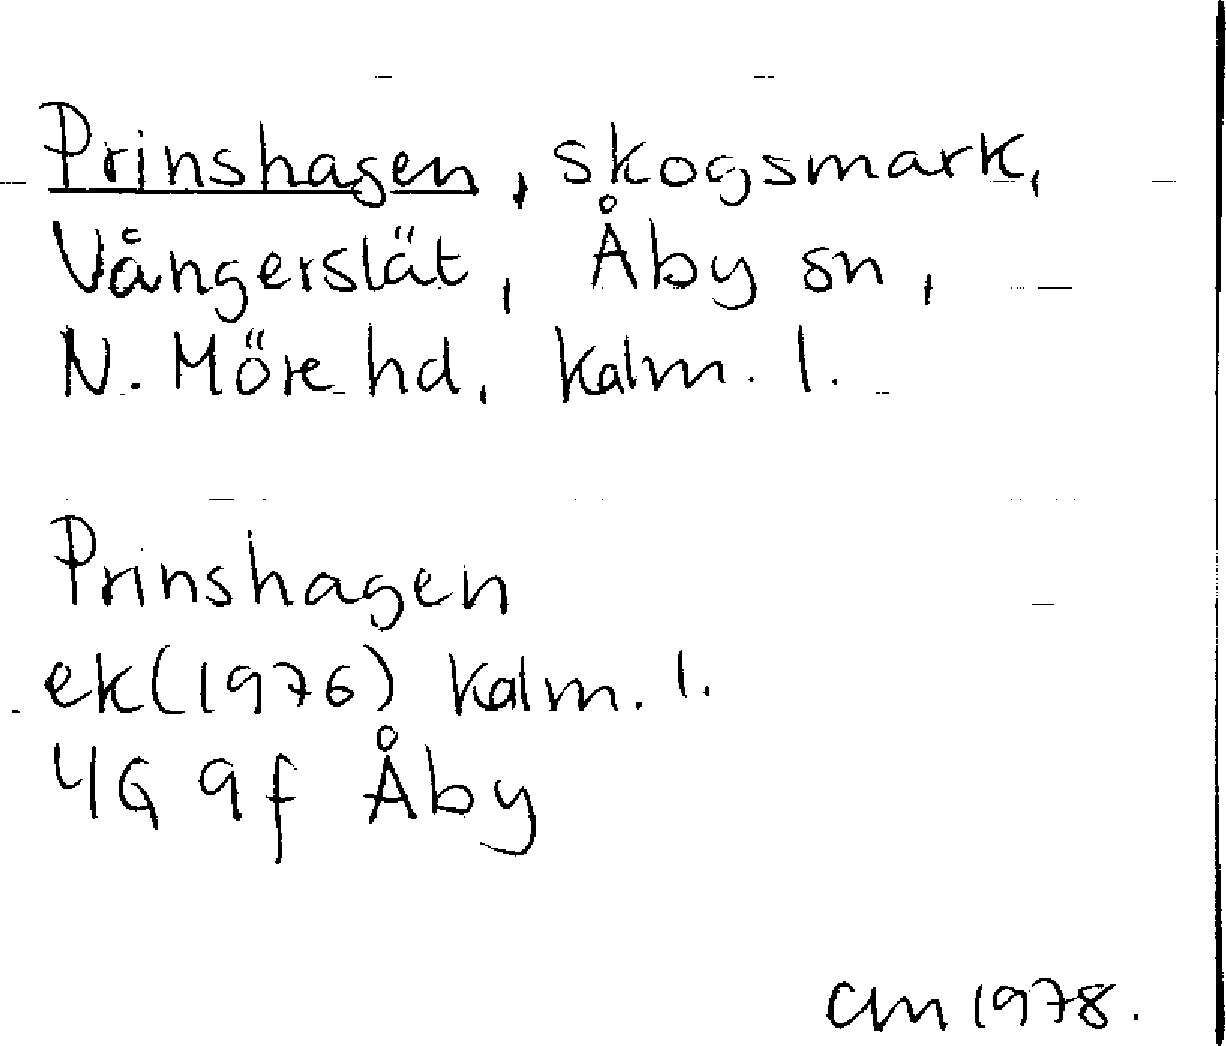 Prinshagen, skogsmark,
Vångerslät, Åby sn,
N. Möre hd, Kalm. l.
Prinshagen
ek(1976) Kalm. l.
4G 9f Åby
CM 1978.